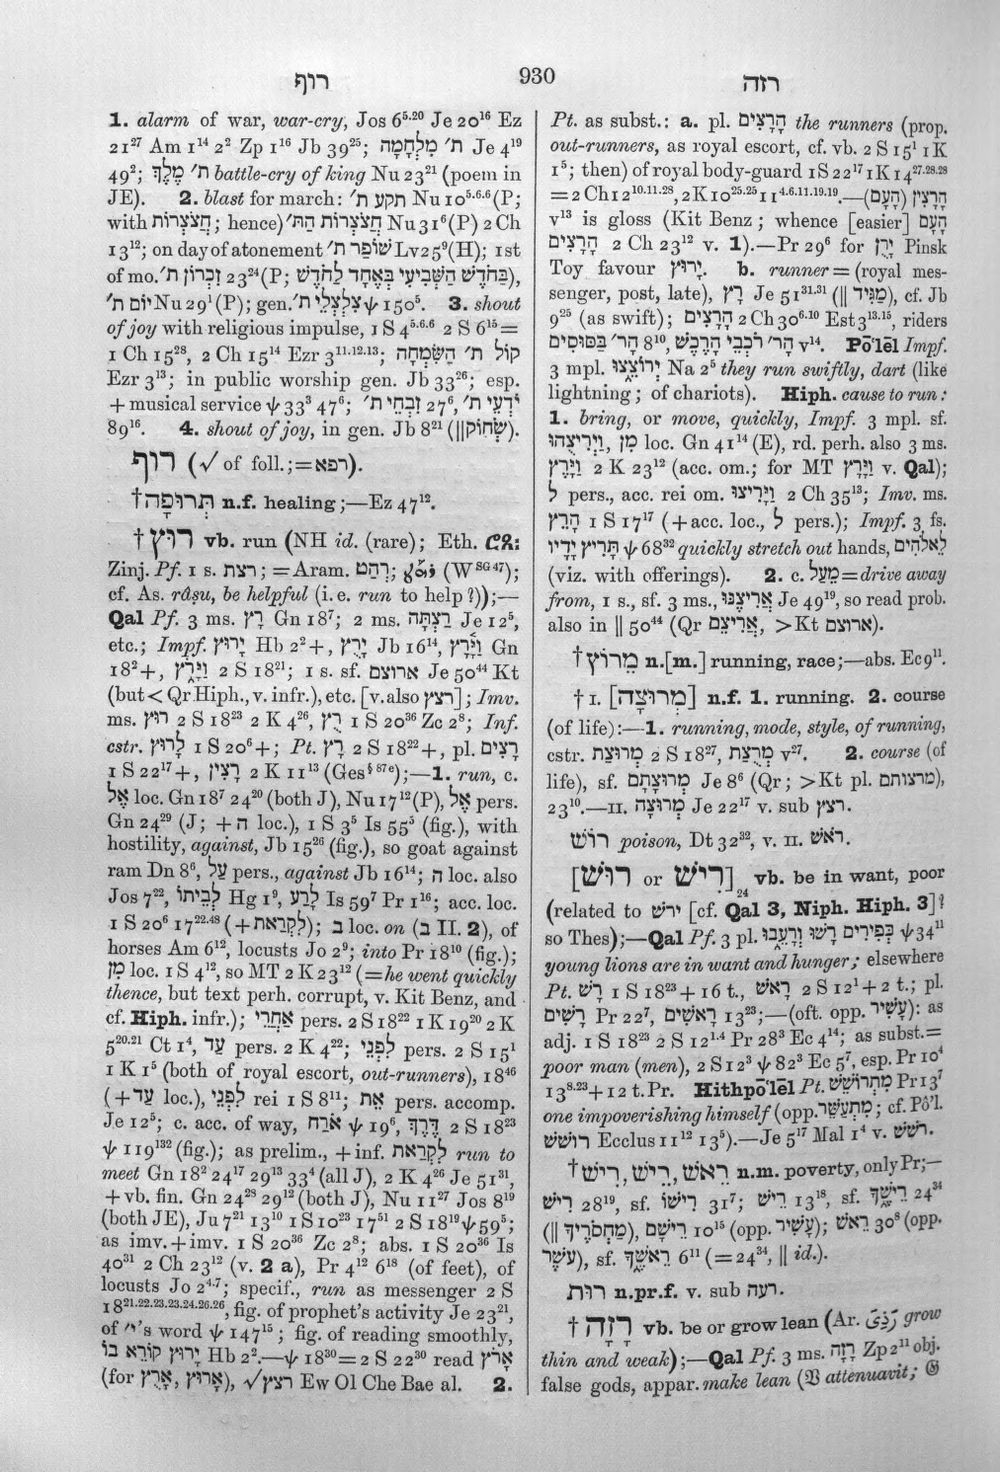 רוף
930
רזה
1. alarm of war, war-cry, Jos 6⁵·²⁰ Je 20¹⁶ Ez
21²⁷ Am 1¹⁴ 2² Zp 1¹⁶ Jb 39²⁵; ת׳ מִלְחָמָה Je 4¹⁹
49²; ת׳ מֶלֶךְ battle-cry of king Nu 23²¹ (poem in
JE). 2. blast for march: תקע ת׳ Nu 10⁵·⁶·⁶ (P;
with חֲצֹצְרוֹת; hence) חֲצֹצְרוֹת הַתּ׳ Nu 31⁶ (P) 2 Ch
13¹²; on day of atonement שׁוֹפַר ת׳ Lv 25⁹ (H); 1st
of mo. זִכְרוֹן ת׳ 23²⁴ (P; בַּחֹדֶשׁ הַשְּׁבִיעִי בְּאֶחָד לַחֹדֶשׁ),
יוֹם ת׳ Nu 29¹ (P); gen. צִלְצְלֵי ת׳ ψ 150⁵. 3. shout
of joy with religious impulse, 1 S 4⁵·⁶·⁶ 2 S 6¹⁵ =
1 Ch 15²⁸, 2 Ch 15¹⁴ Ezr 3¹¹·¹²·¹³; קוֹל ת׳ הַשִּׂמְחָה
Ezr 3¹³; in public worship gen. Jb 33²⁶; esp.
+ musical service ψ 33³ 47⁶; זִבְחֵי ת׳ 27⁶, יֹדְעֵי ת׳
89¹⁶. 4. shout of joy, in gen. Jb 8²¹ (|| שְׂחוֹק).
רוף (√ of foll.; = רפא).
† תְּרוּפָה n.f. healing;—Ez 47¹².
† רוּץ vb. run (NH id. (rare); Eth. ሮጸ፡
Zinj. Pf. 1 s. רצת; = Aram. רְהַט; ܪܗܛ (W SG 47);
cf. As. râṣu, be helpful (i.e. run to help?));—
Qal Pf. 3 ms. רָץ Gn 18⁷; 2 ms. רַצְתָּה Je 12⁵,
etc.; Impf. יָרוּץ Hb 2²+, יָרֻץ Jb 16¹⁴, וַיָּ֫רָץ Gn
18²+, וַיָּרֹץ 2 S 18²¹; 1 s. sf. ארוצם Je 50⁴⁴ Kt
(but < Qr Hiph., v. infr.), etc. [v. also רצץ]; Imv.
ms. רוּץ 2 S 18²³ 2 K 4²⁶, רֻץ 1 S 20³⁶ Zc 2⁸; Inf.
cstr. לָרוּץ 1 S 20⁶+; Pt. רָץ 2 S 18²²+, pl. רָצִים
1 S 22¹⁷+, רָצִין 2 K 11¹³ (Ges § 87e);—1. run, c.
אֶל loc. Gn 18⁷ 24²⁰ (both J), Nu 17¹² (P), אֶל pers.
Gn 24²⁹ (J; + ה loc.), 1 S 3⁵ Is 55⁵ (fig.), with
hostility, against, Jb 15²⁶ (fig.), so goat against
ram Dn 8⁶, עַל pers., against Jb 16¹⁴; ה loc. also
Jos 7²², לְבֵיתוֹ Hg 1⁹, לָרַע Is 59⁷ Pr 1¹⁶; acc. loc.
1 S 20⁶ 17²²·⁴⁸ (+ לִקְרַאת); ב loc. on (ב II. 2), of
horses Am 6¹², locusts Jo 2⁹; into Pr 18¹⁰ (fig.);
מִן loc. 1 S 4¹², so MT 2 K 23¹² (= he went quickly
thence, but text perh. corrupt, v. Kit Benz, and
cf. Hiph. infr.); אַחֲרֵי pers. 2 S 18²² 1 K 19²⁰ 2 K
5²⁰·²¹ Ct 1⁴, עַד pers. 2 K 4²²; לִפְנֵי pers. 2 S 15¹
1 K 1⁵ (both of royal escort, out-runners), 18⁴⁶
(+ עַד loc.), לִפְנֵי rei 1 S 8¹¹; אֵת pers. accomp.
Je 12⁵; c. acc. of way, אֹרַח ψ 19⁶, דֶּרֶךְ 2 S 18²³
ψ 119¹³² (fig.); as prelim., + inf. לִקְרַאת run to
meet Gn 18² 24¹⁷ 29¹³ 33⁴ (all J), 2 K 4²⁶ Je 51³¹,
+ vb. fin. Gn 24²⁸ 29¹² (both J), Nu 11²⁷ Jos 8¹⁹
(both JE), Ju 7²¹ 13¹⁰ 1 S 10²³ 17⁵¹ 2 S 18¹⁹ ψ 59⁵;
as imv. + imv. 1 S 20³⁶ Zc 2⁸; abs. 1 S 20³⁶ Is
40³¹ 2 Ch 23¹² (v. 2 a), Pr 4¹² 6¹⁸ (of feet), of
locusts Jo 2⁴·⁷; specif., run as messenger 2 S
18²¹·²²·²³·²³·²⁴·²⁶·²⁶, fig. of prophet's activity Je 23²¹,
of י׳'s word ψ 147¹⁵; fig. of reading smoothly,
יָרוּץ קוֹרֵא בוֹ Hb 2².—ψ 18³⁰ = 2 S 22³⁰ read אָרֹץ
(for אָרֻץ, אָרוּץ), √ רצץ Ew Ol Che Bae al. 2.
Pt. as subst.: a. pl. הָרָצִים the runners (prop.
out-runners, as royal escort, cf. vb. 2 S 15¹ 1 K
1⁵; then) of royal body-guard 1 S 22¹⁷ 1 K 14²⁷·²⁸·²⁸
= 2 Ch 12¹⁰·¹¹·²⁸, 2 K 10²⁵·²⁵ 11⁴·⁶·¹¹·¹⁹·¹⁹.—(הָעָם) הָרָצִין
v¹³ is gloss (Kit Benz; whence [easier] הָעָם
הָרָצִים 2 Ch 23¹² v. 1).—Pr 29⁶ for יָרֻן Pinsk
Toy favour יָרוּץ. b. runner = (royal mes-
senger, post, late), רָץ Je 51³¹·³¹ (|| מַגִּיד), cf. Jb
9²⁵ (as swift); הָרָצִים 2 Ch 30⁶·¹⁰ Est 3¹³·¹⁵, riders
הָר׳ בַּסּוּסִים 8¹⁰, הָר׳ רֹכְבֵי הָרֶכֶשׁ v¹⁴. Pō'lēl Impf.
3 mpl. יְרוֹצֵ֑צוּ Na 2⁵ they run swiftly, dart (like
lightning; of chariots). Hiph. cause to run:
1. bring, or move, quickly, Impf. 3 mpl. sf.
וַיְרִיצֻהוּ, מִן loc. Gn 41¹⁴ (E), rd. perh. also 3 ms.
וַיָּרֶץ 2 K 23¹² (acc. om.; for MT וַיָּרָץ v. Qal);
לְ pers., acc. rei om. וַיָּרִיצוּ 2 Ch 35¹³; Imv. ms.
הָרֵץ 1 S 17¹⁷ (+ acc. loc., לְ pers.); Impf. 3 fs.
תָּרִיץ יָדָיו לֵאלֹהִים ψ 68³² quickly stretch out hands,
(viz. with offerings). 2. c. מֵעַל = drive away
from, 1 s., sf. 3 ms., אֲרִיצֶנּוּ Je 49¹⁹, so read prob.
also in || 50⁴⁴ (Qr אֲרִיצֵם, > Kt ארוצם).
† מֵרוֹץ n.[m.] running, race;—abs. Ec 9¹¹.
† I. [מְרוּצָה] n.f. 1. running. 2. course
(of life):—1. running, mode, style, of running,
cstr. מְרוּצַת 2 S 18²⁷, מְרֻצַת v²⁷. 2. course (of
life), sf. מְרוּצָתָם Je 8⁶ (Qr; > Kt pl. מרצותם),
23¹⁰.—II. מְרוּצָה Je 22¹⁷ v. sub רצץ.
רוֹשׁ poison, Dt 32³², v. II. רֹאשׁ.
[רוּשׁ or רִישׁ]₂₄ vb. be in want, poor
(related to ירשׁ [cf. Qal 3, Niph. Hiph. 3]?
so Thes);—Qal Pf. 3 pl. כְּפִירִים רָשׁוּ וְרָעֵ֑בוּ ψ 34¹¹
young lions are in want and hunger; elsewhere
Pt. רָשׁ 1 S 18²³ + 16 t., רָאשׁ 2 S 12¹ + 2 t.; pl.
רָשִׁים Pr 22⁷, רָאשִׁים 13²³;—(oft. opp. עָשִׁיר): as
adj. 1 S 18²³ 2 S 12¹·⁴ Pr 28³ Ec 4¹⁴; as subst. =
poor man (men), 2 S 12³ ψ 82³ Ec 5⁷, esp. Pr 10⁴
13⁸·²³ + 12 t. Pr. Hithpō'lēl Pt. מִתְרוֹשֵׁשׁ Pr 13⁷
one impoverishing himself (opp. מִתְעַשֵּׁר; cf. Pô'l.
רושש Ecclus 11¹² 13⁵).—Je 5¹⁷ Mal 1⁴ v. רשׁשׁ.
† רֵישׁ, רִישׁ, רֵאשׁ n.m. poverty, only Pr;—
רִישׁ 28¹⁹, sf. רִישׁוֹ 31⁷; רֵישׁ 13¹⁸, sf. רֵישֶׁךָ 24³⁴
(|| מַחְסֹרֶיךָ), רֵישָׁם 10¹⁵ (opp. עָשִׁיר); רֵאשׁ 30⁸ (opp.
עֹשֶׁר), sf. רֵאשֶׁ֑ךָ 6¹¹ (= 24³⁴, || id.).
רוּת n.pr.f. v. sub רעה.
† רָזָה vb. be or grow lean (Ar. رَذِىَ grow
thin and weak);—Qal Pf. 3 ms. רָזָה Zp 2¹¹ obj.
false gods, appar. make lean (𝔙 attenuavit; 𝔊